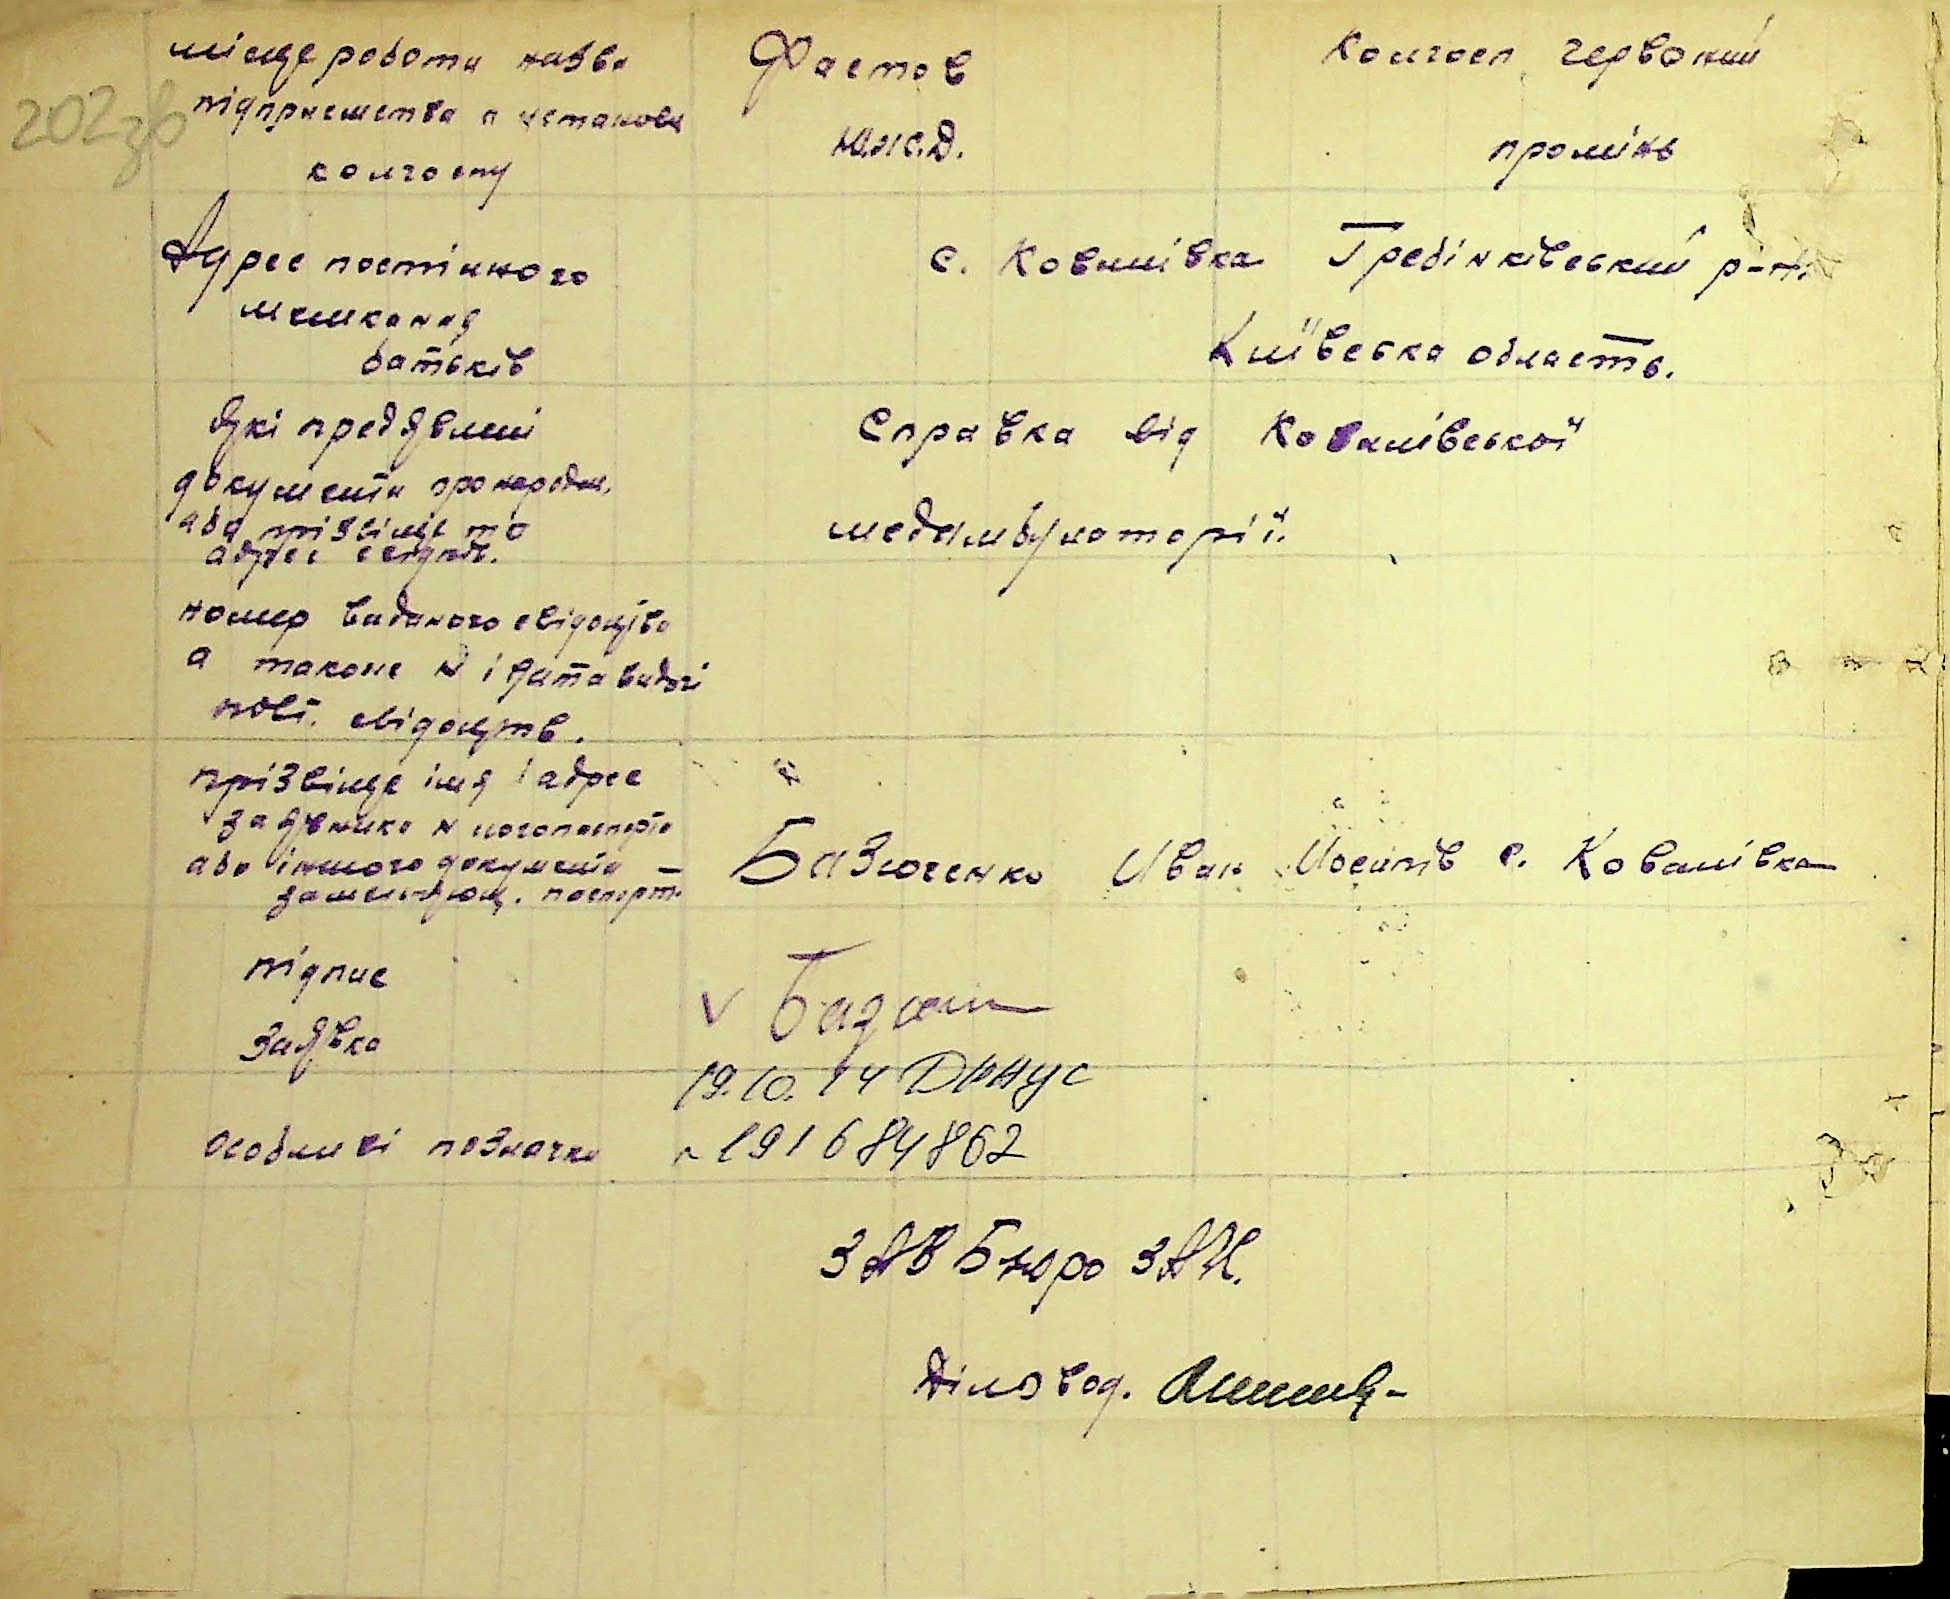 202зв
місце роботи назва
підприємства а установи
колгоспу
Фастов
Ю.Ж.Д.
Колгосп червоний
промінь
Адрес постійного
мешканя
батьків
с. Ковалівка Гребінківський р-н.
Київська область.
Які предявлені
документи про народж.
або прізвіще та
адрес свідків.
Справка від Ковалівської
медамбулаторії.
номер виданого свідоцтва
а також № і дата видачі
повт. свідоцтв.
прізвіще імя і адрес
заявника № його паспорта
або іншого документа
заменяющ. паспорт.
Базюченко Иван Йосипів с. Ковалівка
підпис
заявка
v
19.10.74
особливі позначки
191684862
ЗАВ Бюро ЗАГ.
Діловод.